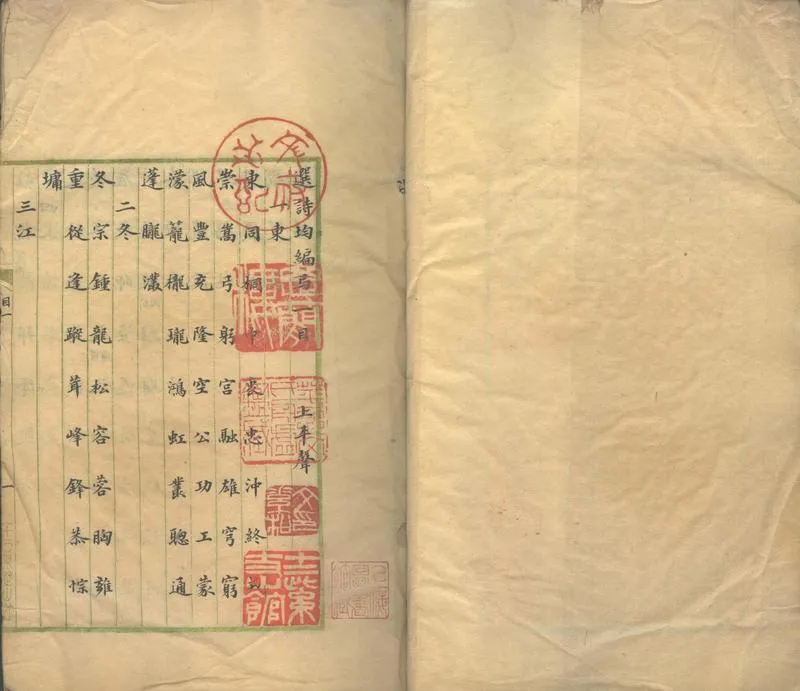 選詩均編弓一目 上平聲
一東
東同桐中衷忠沖終
崇嵩弓躬宮融雄穹窮
風豐充隆空公功工蒙
濛籠櫳瓏鴻虹叢聰通
蓬朧瀧
二冬
冬宗鍾龍松容蓉胸雍
重從逢蹤茸峰鋒恭悰
墉
三江
目一